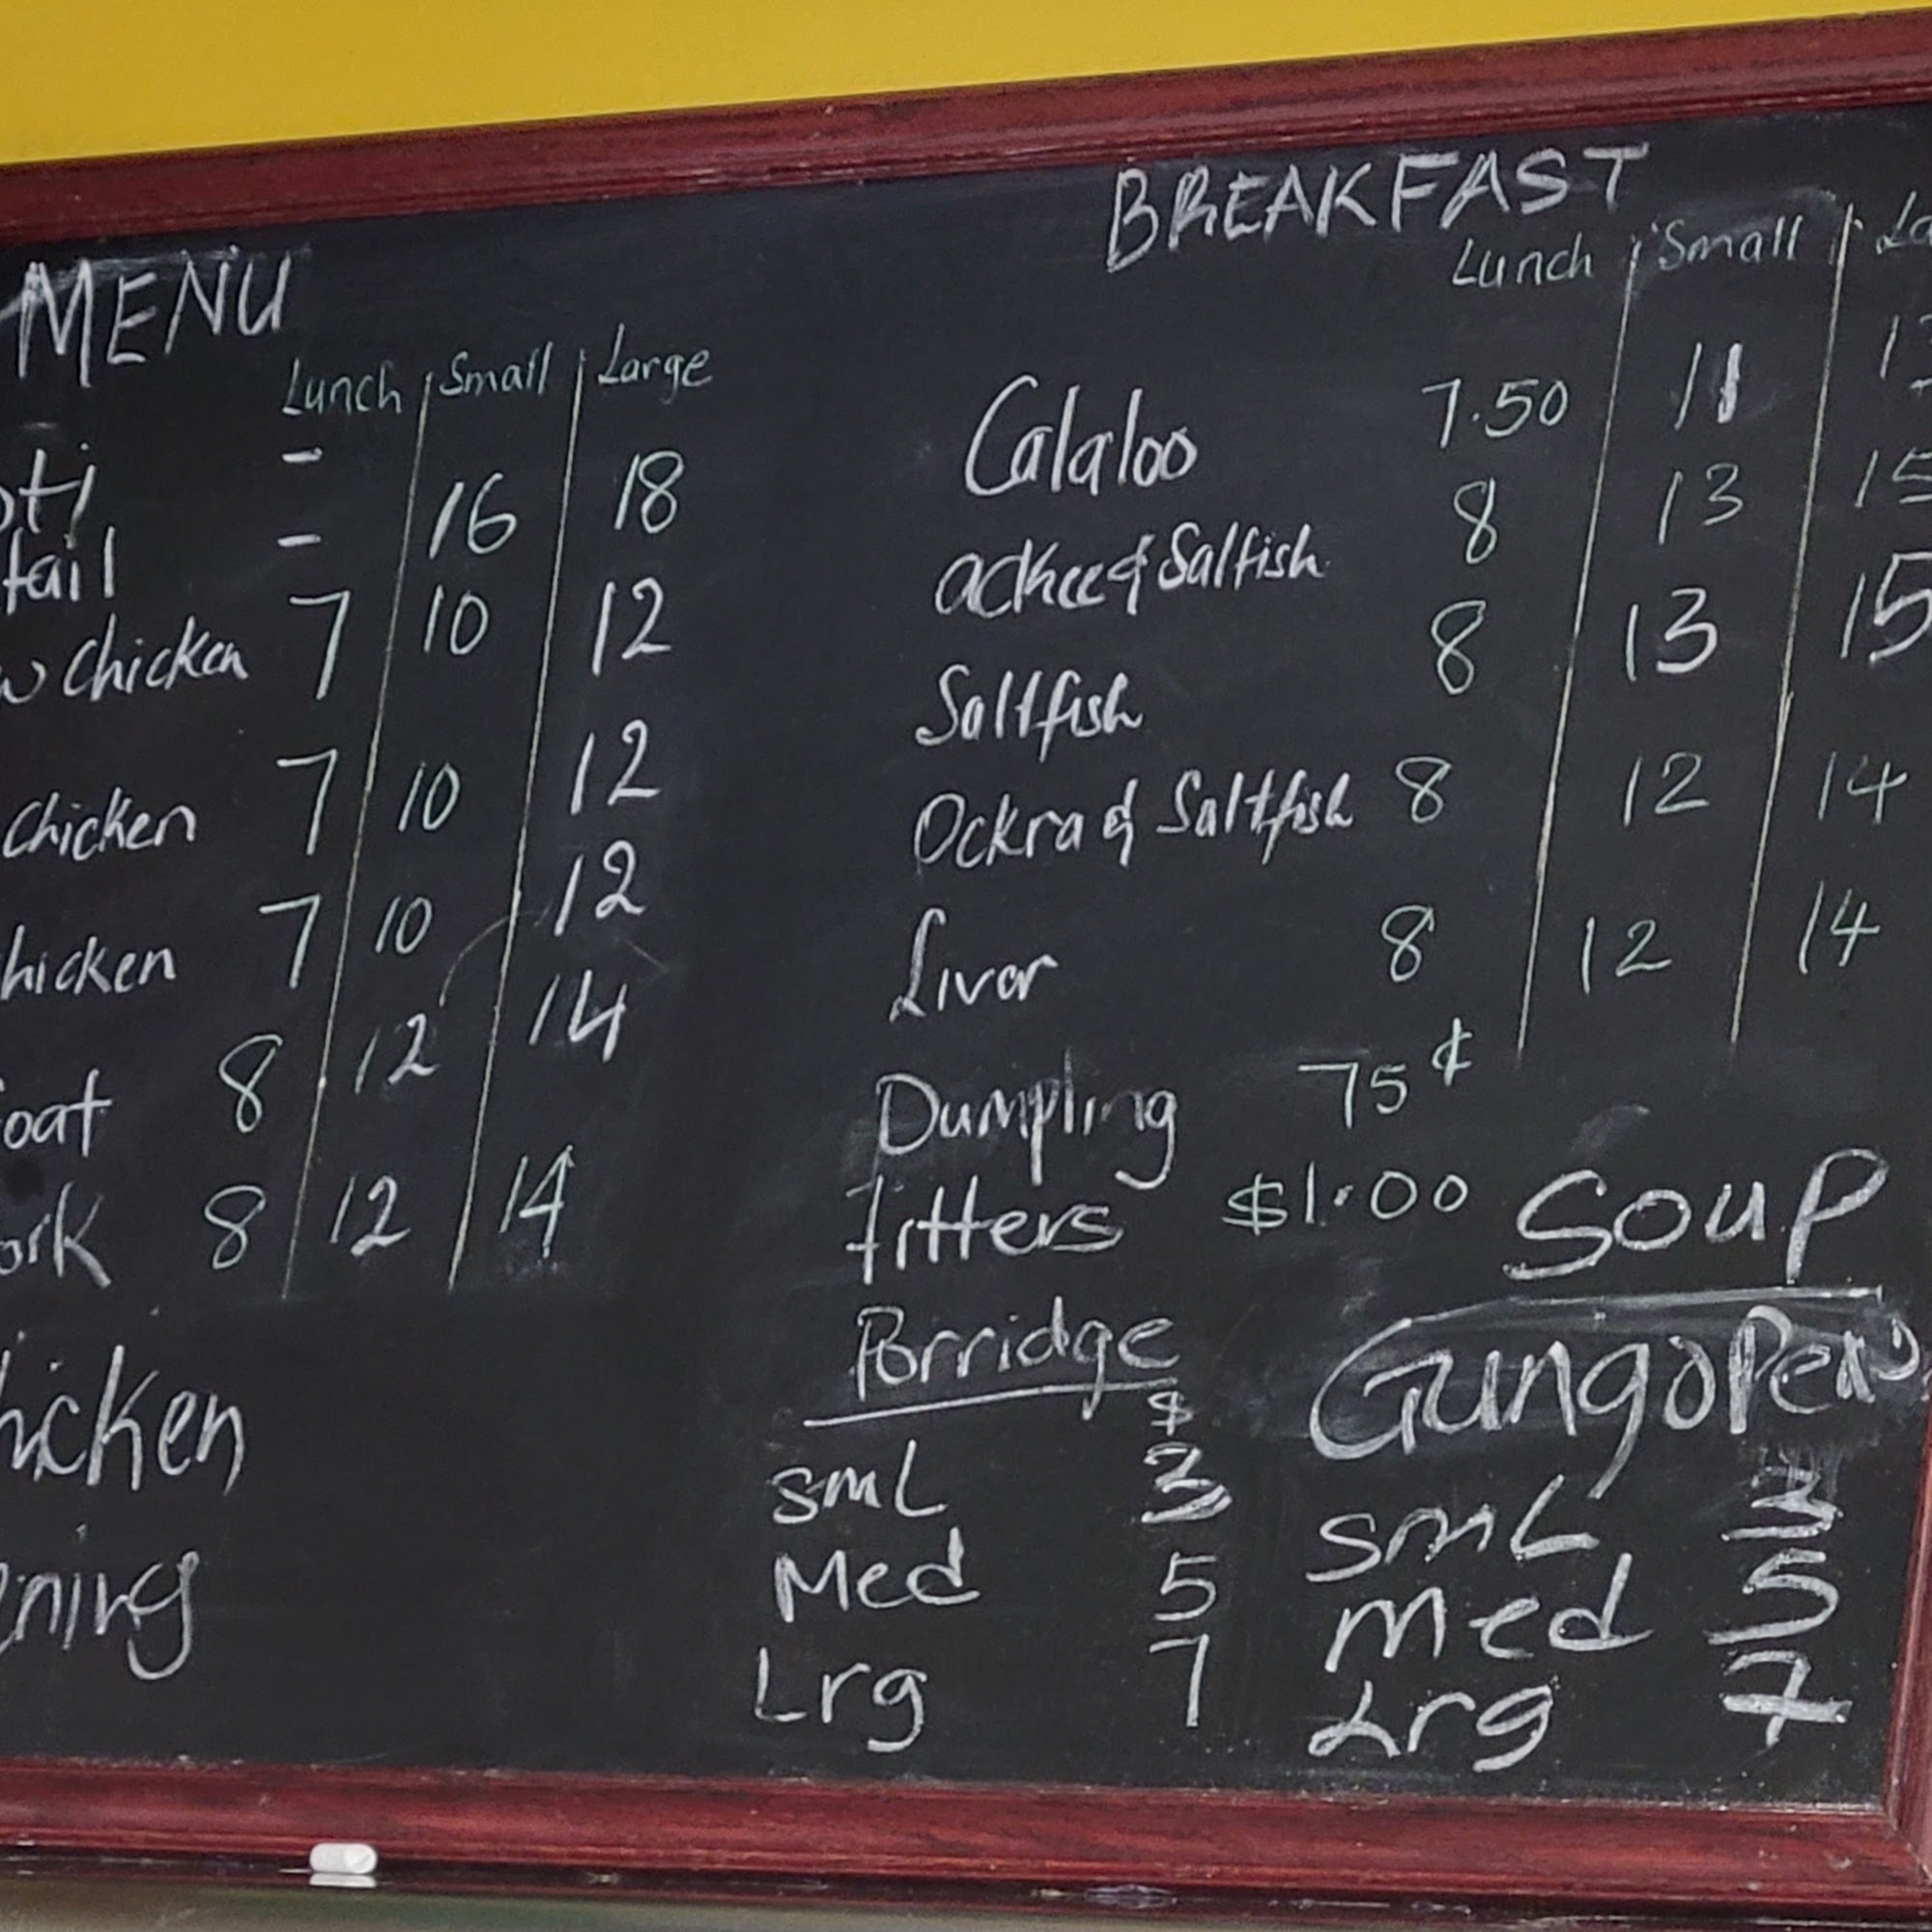 MENU
Lunch Small Large
oti -
tail - 16 18
w Chicken 7 10 12
Chicken 7 10 12
hicken 7 10 12
oat 8 12 14
ork 8 12 14
hicken
ning
BREAKFAST
Lunch Small La
Calaloo 7.50 11
ackee & Saltfish 8 13 15
Saltfish 8 13 15
Ockra & Saltfish 8 12 14
Livor 8 12 14
Dumpling 75¢
fritters $1.00
Porridge
$
smL 3
Med 5
Lrg 7
Soup
Gungo Peas
smL 3
med 5
Lrg 7